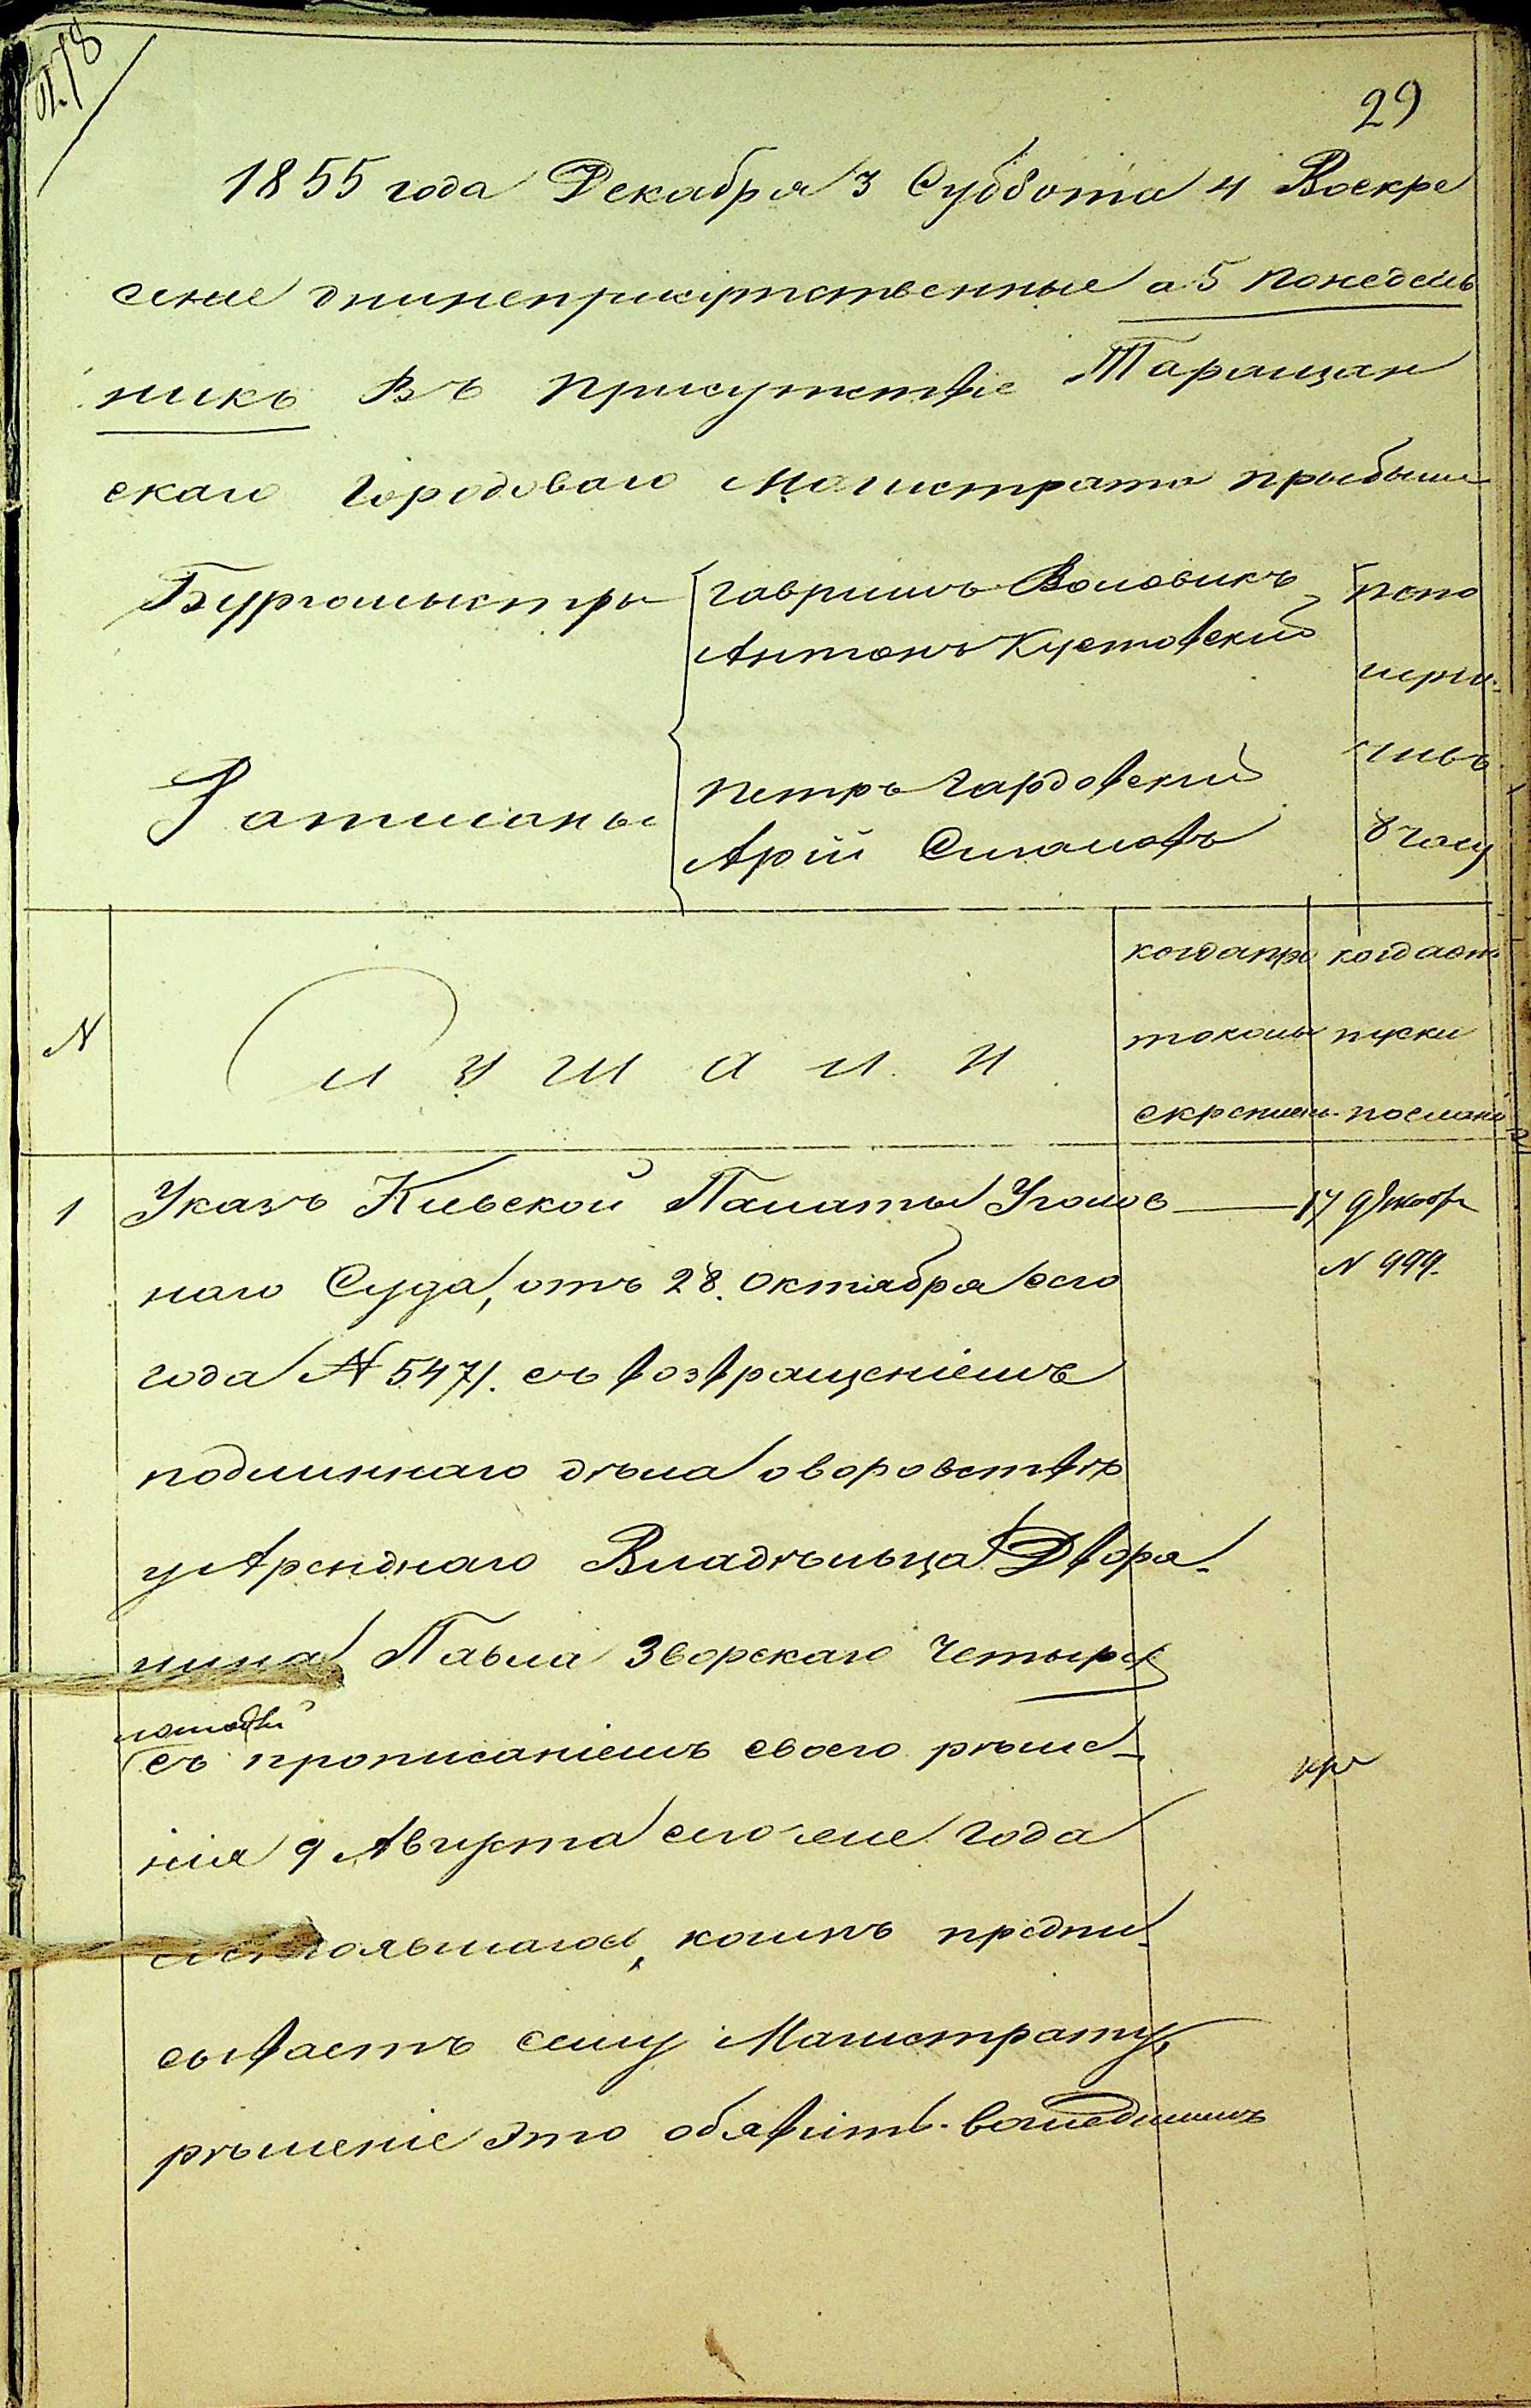 29
1855 года Декабря 3 Суббота 4 Воскре
сение дни неприсутственные а 5 понедель
никъ Въ присутствіе Таращан
скаго Городоваго Магистрата прыбыли
Бургомыстры
Гавриилъ Воловикъ
Антонъ Кустовский
Ратманы
Петръ Гардовский
Арій Смоловъ
попо
лунь
8 часу
N
Слушали
когда про
токолы
скреплен.
когда от
пуски
посланы
1 Указъ Киевской Палаты Уголов
наго Суда, отъ 28. Октября сего
года N 5471. съ возвращеніемъ
подлиннаго дѣла о воровствѣ
у Аренднаго Владѣльца Дворя-
нина Павла Зворскаго четырех
лошадей
съ прописаніемъ своего рѣше-
нія 9 Августа сего же года
состоявшагося, коимъ предпи-
сываетъ сему Магистрату,
рѣшеніе это обявить вошедшимъ
17 Декабр
N 999.